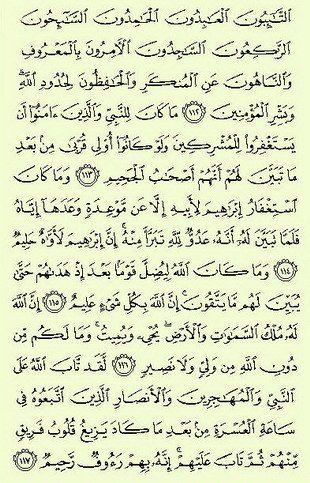 ٱلتَّـٰٓئِبُونَ ٱلْعَـٰبِدُونَ ٱلْحَـٰمِدُونَ ٱلسَّـٰٓئِحُونَ
ٱلرَّٰكِعُونَ ٱلسَّـٰجِدُونَ ٱلْـَٔامِرُونَ بِٱلْمَعْرُوفِ
وَٱلنَّاهُونَ عَنِ ٱلْمُنكَرِ وَٱلْحَـٰفِظُونَ لِحُدُودِ ٱللَّهِ ۗ
وَبَشِّرِ ٱلْمُؤْمِنِينَ ﴿١١٢﴾ مَا كَانَ لِلنَّبِىِّ وَٱلَّذِينَ ءَامَنُوٓا۟ أَن
يَسْتَغْفِرُوا۟ لِلْمُشْرِكِينَ وَلَوْ كَانُوٓا۟ أُو۟لِى قُرْبَىٰ مِنۢ بَعْدِ
مَا تَبَيَّنَ لَهُمْ أَنَّهُمْ أَصْحَـٰبُ ٱلْجَحِيمِ ﴿١١٣﴾ وَمَا كَانَ
ٱسْتِغْفَارُ إِبْرَٰهِيمَ لِأَبِيهِ إِلَّا عَن مَّوْعِدَةٍ وَعَدَهَآ إِيَّاهُ
فَلَمَّا تَبَيَّنَ لَهُۥٓ أَنَّهُۥ عَدُوٌّ لِّلَّهِ تَبَرَّأَ مِنْهُ ۚ إِنَّ إِبْرَٰهِيمَ لَأَوَّٰهٌ حَلِيمٌ
﴿١١٤﴾ وَمَا كَانَ ٱللَّهُ لِيُضِلَّ قَوْمًۢا بَعْدَ إِذْ هَدَىٰهُمْ حَتَّىٰ
يُبَيِّنَ لَهُم مَّا يَتَّقُونَ ۚ إِنَّ ٱللَّهَ بِكُلِّ شَىْءٍ عَلِيمٌ ﴿١١٥﴾ إِنَّ ٱللَّهَ
لَهُۥ مُلْكُ ٱلسَّمَـٰوَٰتِ وَٱلْأَرْضِ ۖ يُحْىِۦ وَيُمِيتُ ۚ وَمَا لَكُم مِّن
دُونِ ٱللَّهِ مِن وَلِىٍّ وَلَا نَصِيرٍ ﴿١١٦﴾ لَّقَد تَّابَ ٱللَّهُ عَلَى
ٱلنَّبِىِّ وَٱلْمُهَـٰجِرِينَ وَٱلْأَنصَارِ ٱلَّذِينَ ٱتَّبَعُوهُ فِى
سَاعَةِ ٱلْعُسْرَةِ مِنۢ بَعْدِ مَا كَادَ يَزِيغُ قُلُوبُ فَرِيقٍ
مِّنْهُمْ ثُمَّ تَابَ عَلَيْهِمْ ۚ إِنَّهُۥ بِهِمْ رَءُوفٌ رَّحِيمٌ ﴿١١٧﴾